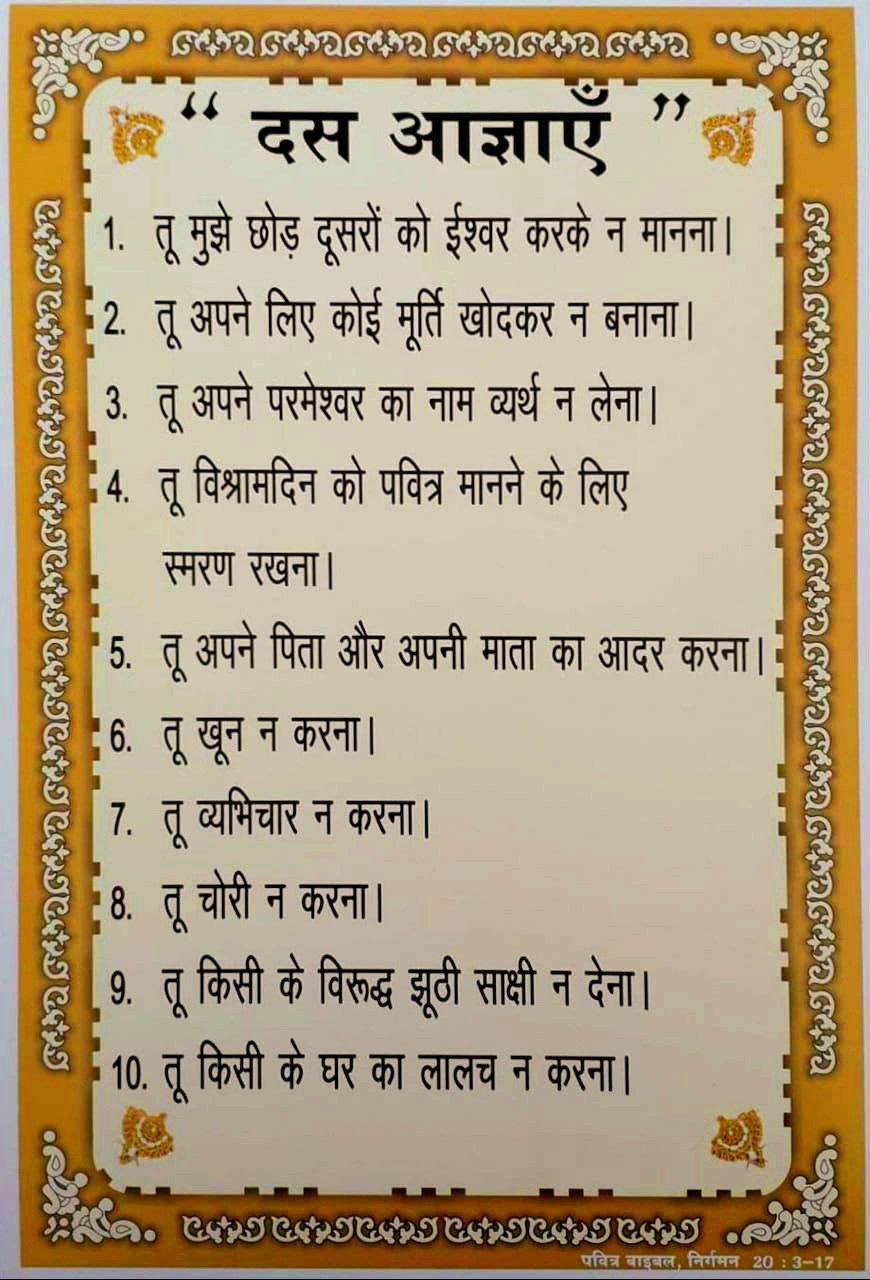 “ दस आज्ञाएँ ”
1. तू मुझे छोड़ दूसरों को ईश्वर करके न मानना।
2. तू अपने लिए कोई मूर्ति खोदकर न बनाना।
3. तू अपने परमेश्वर का नाम व्यर्थ न लेना।
4. तू विश्रामदिन को पवित्र मानने के लिए
स्मरण रखना।
5. तू अपने पिता और अपनी माता का आदर करना।
6. तू खून न करना।
7. तू व्यभिचार न करना।
8. तू चोरी न करना।
9. तू किसी के विरूद्ध झूठी साक्षी न देना।
10. तू किसी के घर का लालच न करना।
पवित्र बाइबल, निर्गमन 20 : 3-17